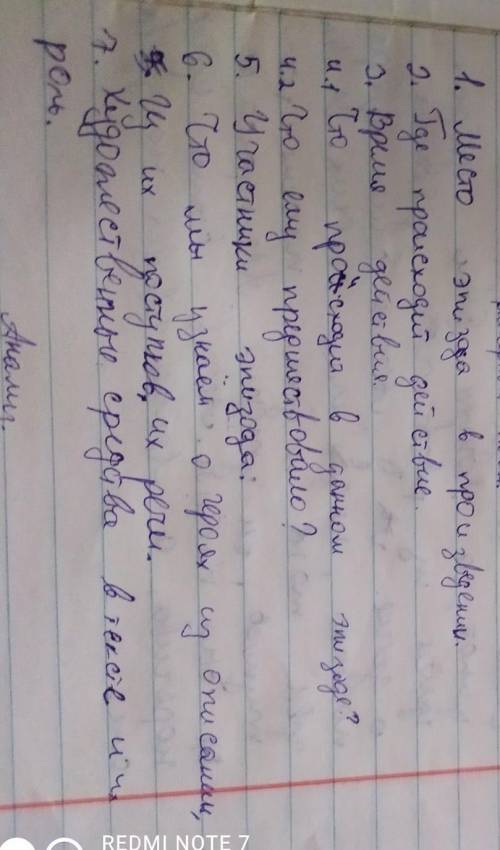 1. Место эпизода в произведении.
2. Где происходит действие.
3. Время действия.
4.1 Что происходит в данном эпизоде?
4.2 Что ему предшествовало?
5. Участники эпизода.
6. Что мы узнаём о героях из описания,
из их поступков, их речи.
7. Художественные средства в тексте и их
роль.
Анализ.
REDMI NOTE 7